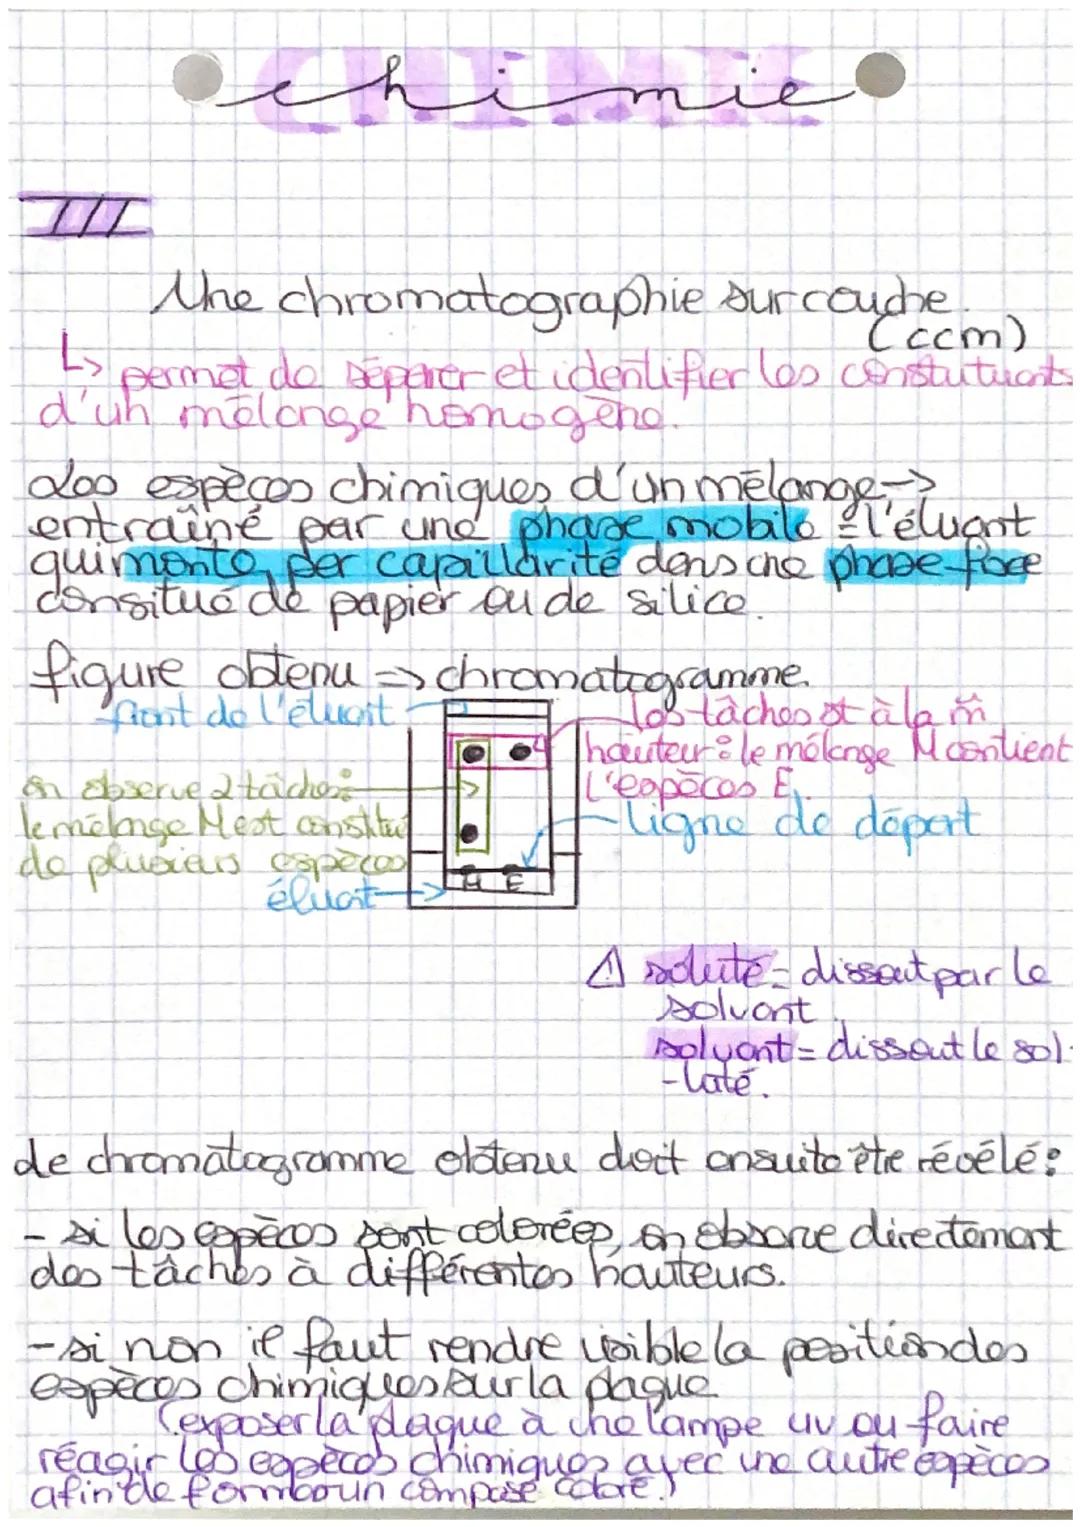 chimie
III
Une chromatographie sur couche
(ccm)
↳ permet de séparer et identifier les constutuants
d'un mélange homogène.
Les espèces chimiques d'un mélange →
entraîné par une phase mobile = l'éluant
qui monte per capillarité dans une phase fixe
consitué de papier ou de silice.
figure obtenu => chromatogramme.
front de l'éluant
les tâches st à la m̂
hauteur : le mélange M contient
l'espèces E.
on observe 2 tâches :
le mélange M est constitué
de plusieurs espèces
ligne de départ
éluant
M E
⚠ soluté = dissout par le
solvant.
solvant = dissout le sol-
-luté.
Le chromatogramme obtenu doit ensuite être révélé :
- si les espèces sont colorées, on observe directement
des tâches à différentes hauteurs.
- si non il faut rendre visible la position des
espèces chimiques sur la plaque
(exposer la plaque à une lampe uv ou faire
réagir les espèces chimiques avec une autre espèces
afin de former un composé coloré.)